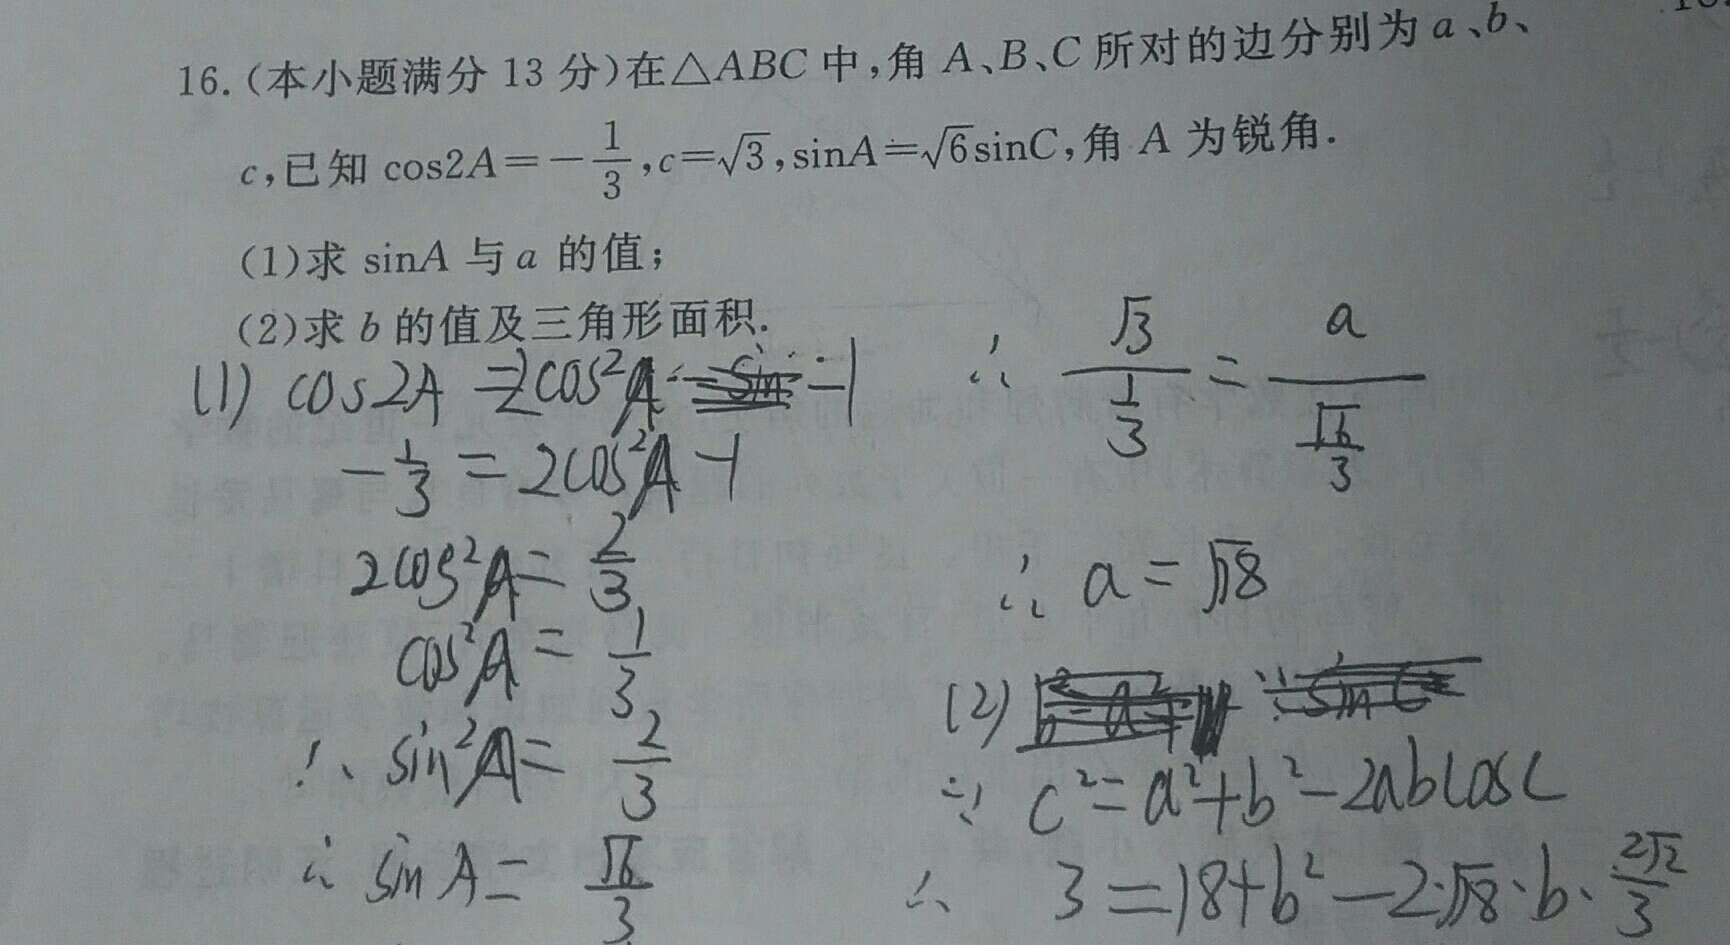 16.(本小题满分 13 分)在△ABC 中,角 A、B、C 所对的边分别为 a、b、
c,已知 cos2A=-1/3,c=√3,sinA=√6sinC,角 A 为锐角.
(1)求 sinA 与 a 的值;
(2)求 b 的值及三角形面积.
(1) cos2A =2cos²A -1
-1/3 = 2cos²A -1
2cos²A = 2/3
cos²A = 1/3
∴ sin²A = 2/3
∴ sin A = √6/3
∴ √3/(1/3) = a/(√6/3)
∴ a = √18
(2)
∵ c² = a²+b²-2abcosC
∴ 3 = 18+b²-2·√18·b·2√2/3